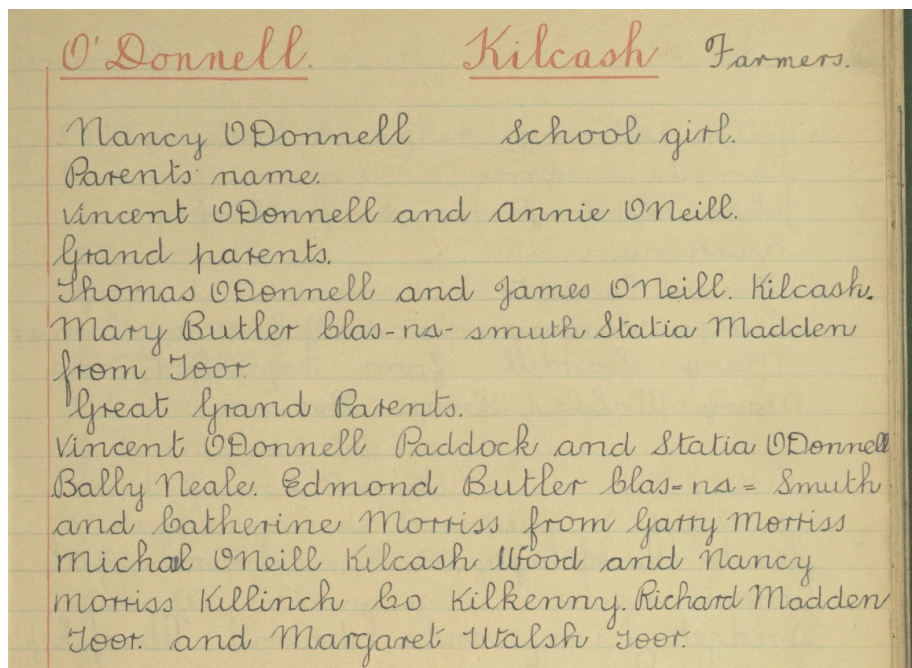 O'Donnell. Kilcash Farmers.
Nancy ODonnell School girl.
Parents name.
Vincent ODonnell and Annie ONeill.
Grand parents.
Thomas ODonnell and James ONeill. Kilcash.
Mary Butler Clas-na-smuth Statia Madden
from Toor.
Great Grand Parents.
Vincent ODonnell Paddock and Statia ODonnell
Bally Neale. Edmond Butler Clas=na=Smuth
and Catherine Morriss from Garry Morriss
Michal ONeill Kilcash Wood and Nancy
Morriss Killinch Co Kilkenny. Richard Madden
Toor. and Margaret Walsh Toor.